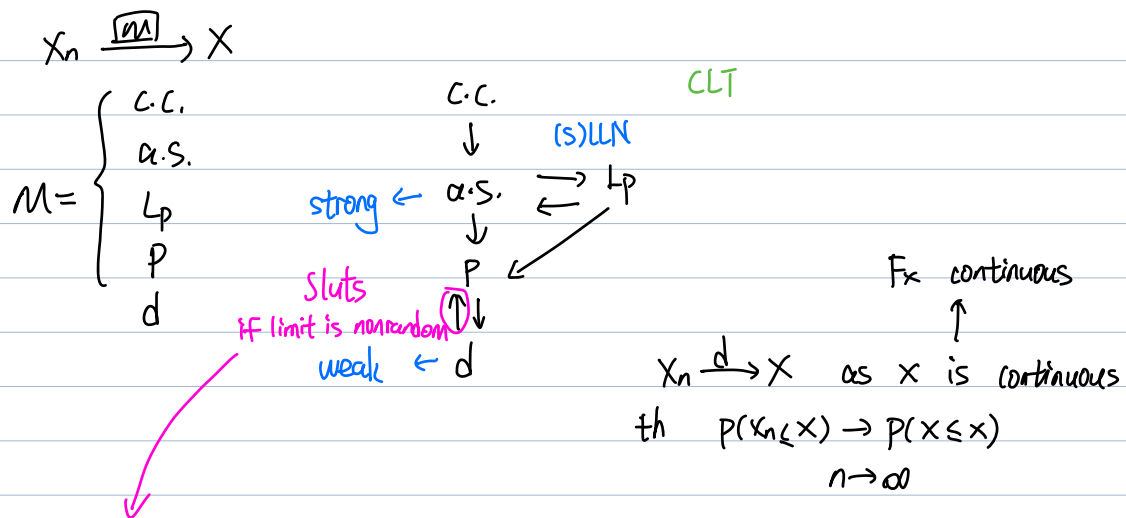 Xn m → X
CLT
M = { c.c. a.s. Lp P d
c.c.
↓
(s)LLN
strong ← a.s. ⇄ Lp
↓
P
Sluts
if limit is nonrandom ↑↓
weak ← d
Fx continuous
↑
Xn d → X as X is continuous
th P(Xn ≤ x) → P(X ≤ x)
n → ∞